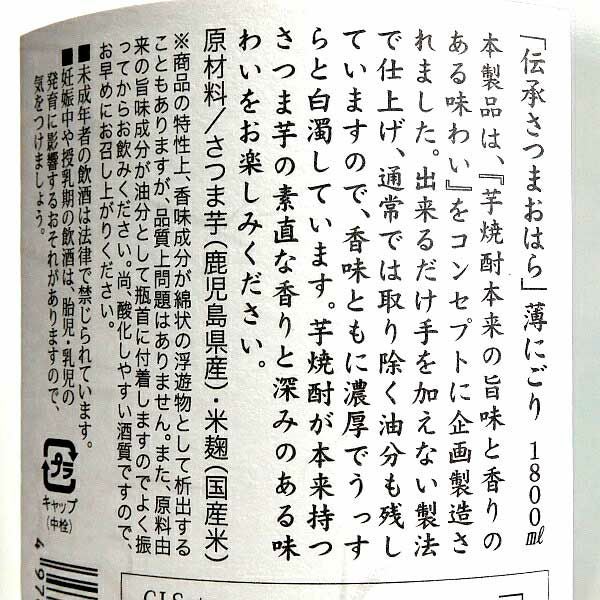 「伝承さつまおはら」薄にごり 1800ml
本製品は、『芋焼酎本来の旨味と香りの
ある味わい』をコンセプトに企画製造さ
れました。出来るだけ手を加えない製法
で仕上げ、通常では取り除く油分も残し
ていますので、香味ともに濃厚でうっす
らと白濁しています。芋焼酎が本来持つ
さつま芋の素直な香りと深みのある味
わいをお楽しみください。
原材料/さつま芋(鹿児島県産)・米麹(国産米)
※商品の特性上、香味成分が綿状の浮遊物として析出する
こともありますが、品質上問題はありません。また、原料由
来の旨味成分が油分として瓶首に付着しますのでよく振
ってからお飲みください。尚、酸化しやすい酒質ですので、
お早めにお召し上がりください。
■未成年者の飲酒は法律で禁じられています。
■妊娠中や授乳期の飲酒は、胎児・乳児の
発育に影響するおそれがありますので、
気をつけましょう。
プラ
キャップ
(中栓)
4 97